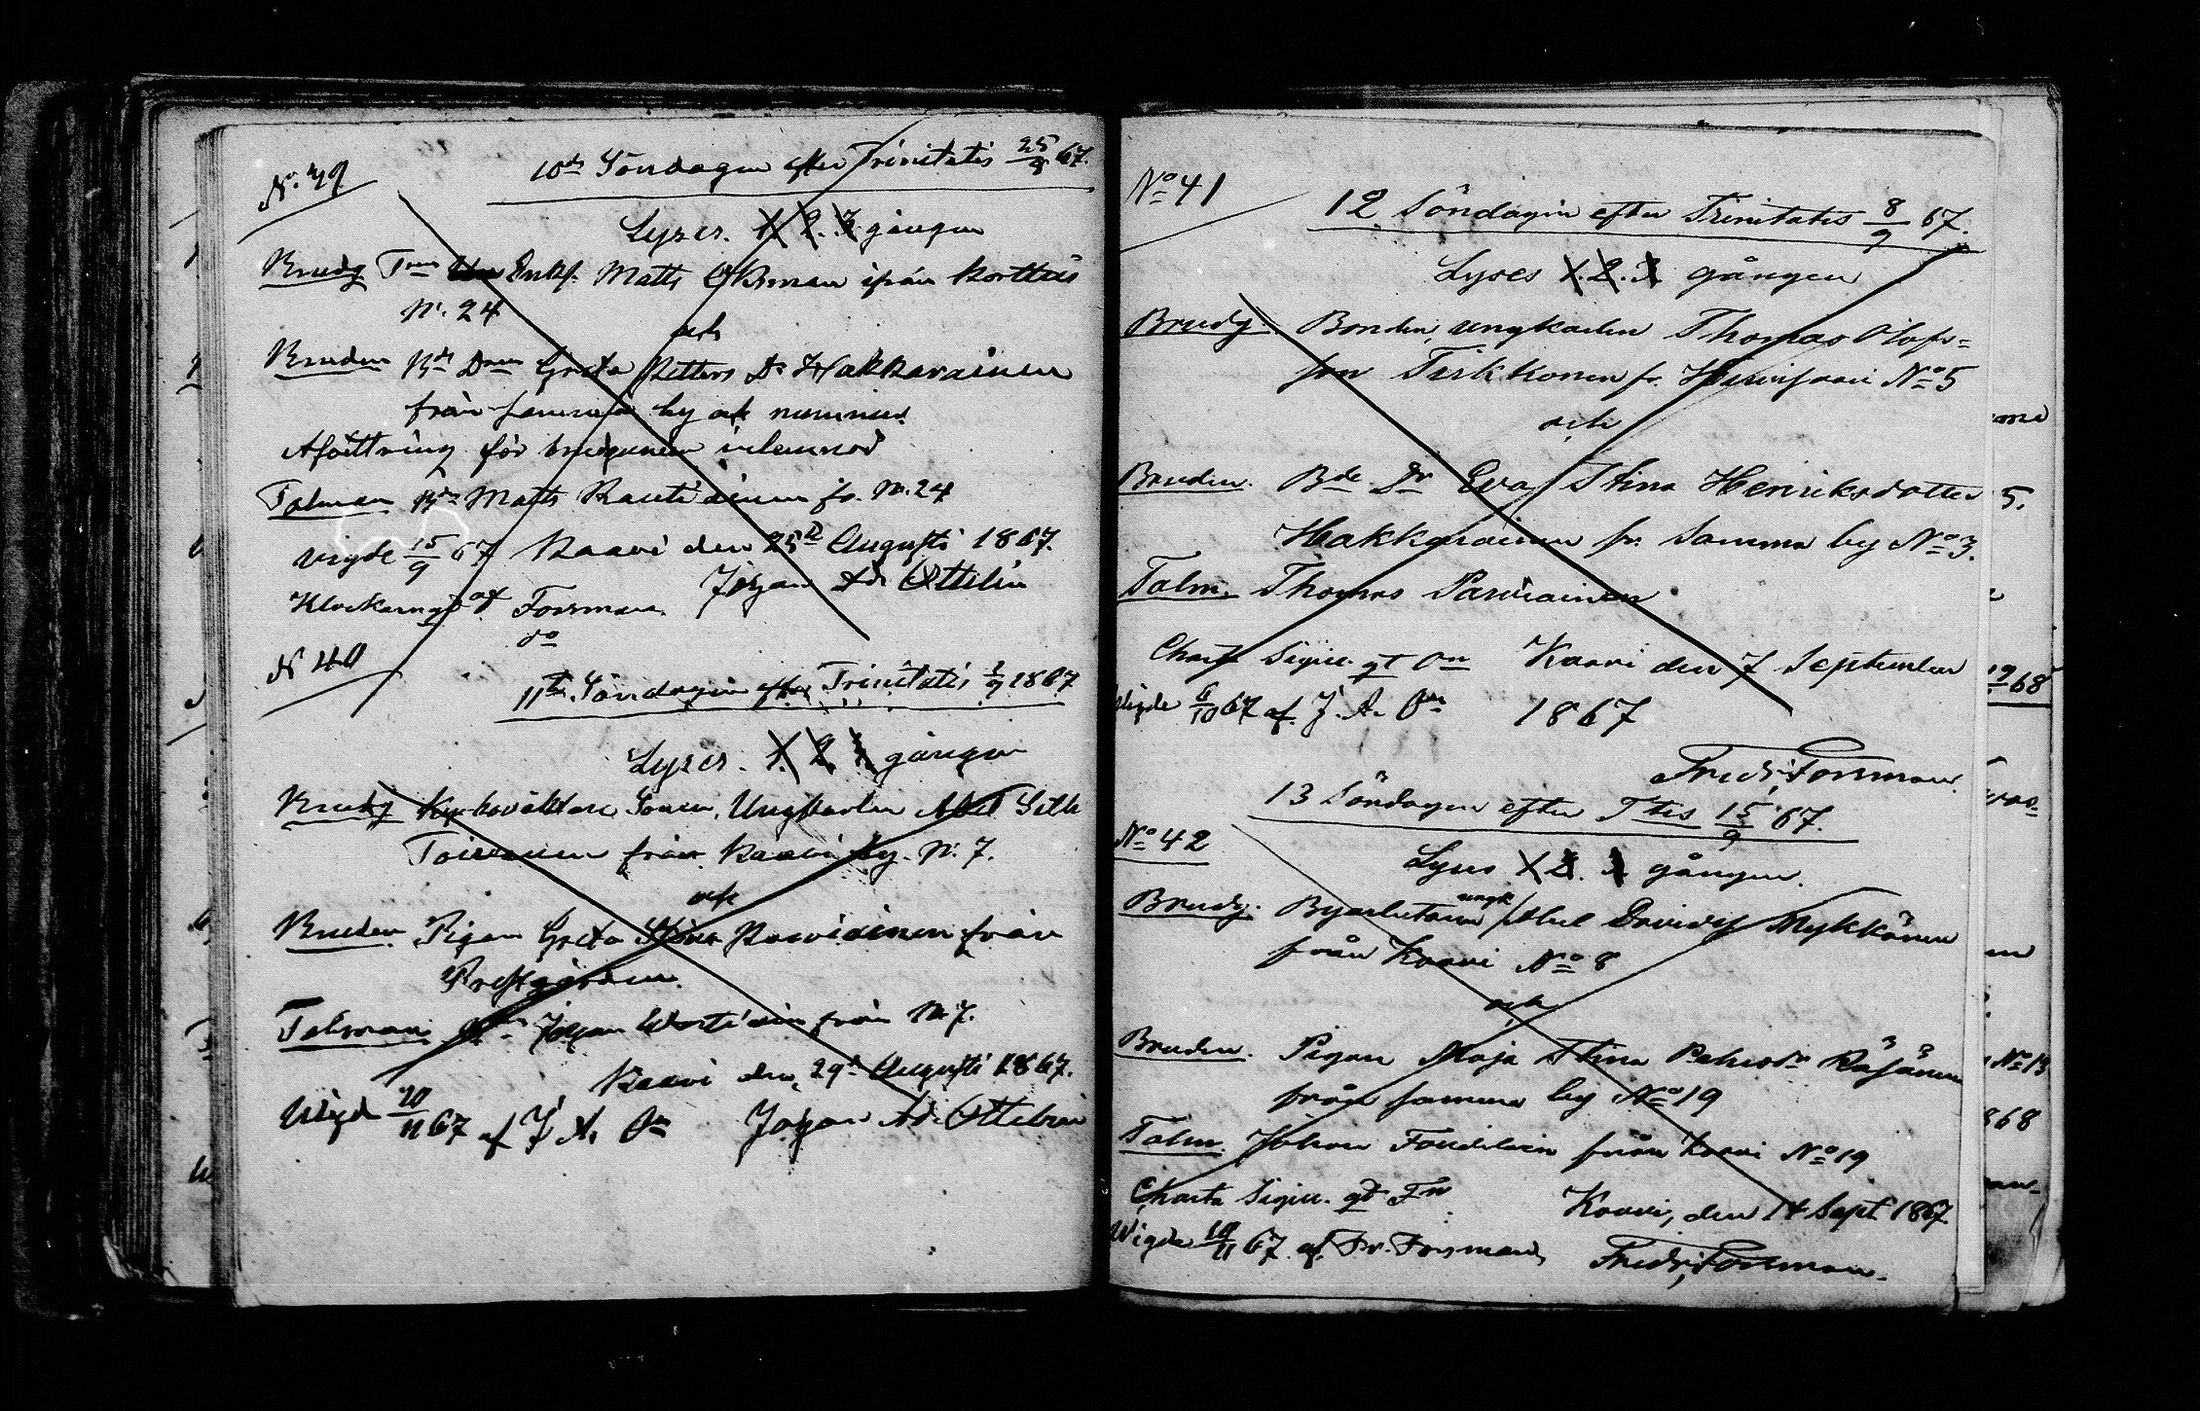 No. 39
10de Söndagen efter Trinitatis 25/8 67.
Lyses. 1. 2. 3 gången
Brudg Enkl. Matts Ökman ifrån Kortteis
N. 24
och
Bruden Bde Dren Greta Petters Dr Hakkarainen
från samma by och nummer.
Afvittring för brudgummen inlemnad
Talman Matts Rautiainen fr. N. 24
Vigde 15/9 67 Kaavi den 25 Augusti 1867.
Johan Ad. Ottelin
Klockareng gt Forsman
do
N 40
11te Söndagen efter Trinitatis 1/9 1867
Lyses. 1. 2. 3 gången
Brudg Kyrkovaktare Sonen, Ungkarlen Abel
Toivanen från Kaavi by. N. 7.
och
Bruden Pigan Greta Stina Parviainen från
Prestgården.
Talman Johan från N. 7.
Kaavi den 29 Augusti 1867.
Vigd 20/11 67 af J. A. On Johan Ad. Ottelin
No 41
12 Söndagen efter Trinitatis 8/9 67.
Lyses 1. 2. 3 gången
Brudg. Bonden, ungkarlen Thomas Olofs=
son Tirkkonen fr. No 5
och
Bruden. Bde Dr Eva Stina Henriksdotter
Hakkarainen fr. Samma by No 3.
Talm. Thomas Parviainen
Charta Sigill. gt On Kaavi den 7 September
Vigde 6/10 67 af. J. A. On 1867
Fredr. Forsman.
13 Söndagen efter Ttis 15/9 67.
No 42
Lyses 1. 2. 3 gången.
Brudg. ungk Abel Davidss Mykkänen
från Kaavi No 8
och
Bruden. Pigan Maja Stina Räsänen
från samma by No 19
Talm. Johan från Kaavi No 19
Charta Sigill. gt Fn Kaavi, den 14 Sept 1867
Wigde 10/11 67. af. Fr. Forsman, Fredr. Forsman.
5.
19 68
No 13
868